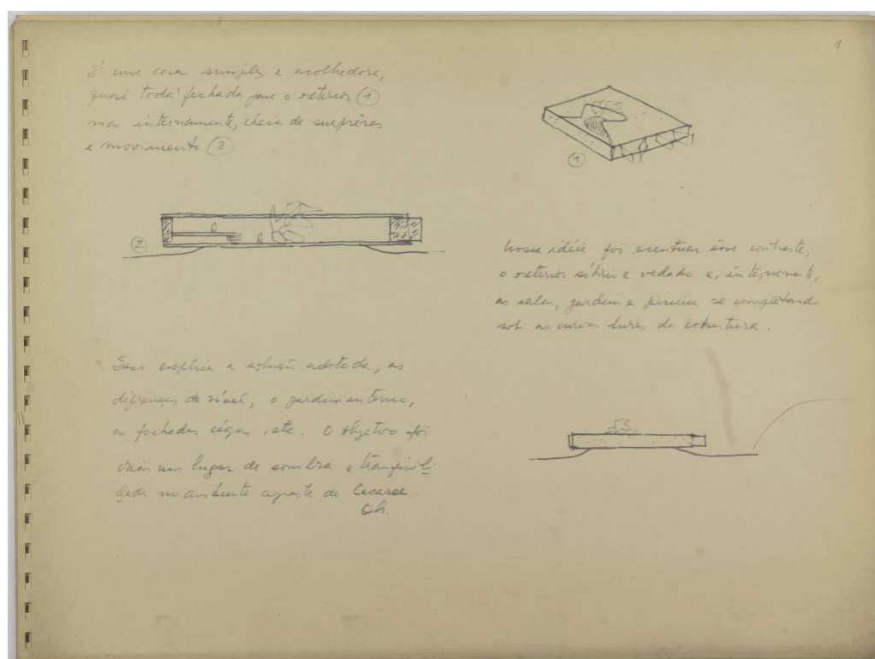 1
É uma casa simples e acolhedora,
quase toda fechada para o exterior ①
mas internamente, cheia de surprêsas
e movimento ②
①
②
Nossa idéia foi acentuar êsse contraste,
o exterior sóbrio e vedado e, internamente,
as salas, jardim e piscina se completando
sob as curvas livres da cobertura.
Isso explica a solução adotada, as
diferenças de nível, o jardim interno,
as fachadas cegas, etc. O objetivo foi
criar um lugar de sombra e tranquili
dade no ambiente agreste de